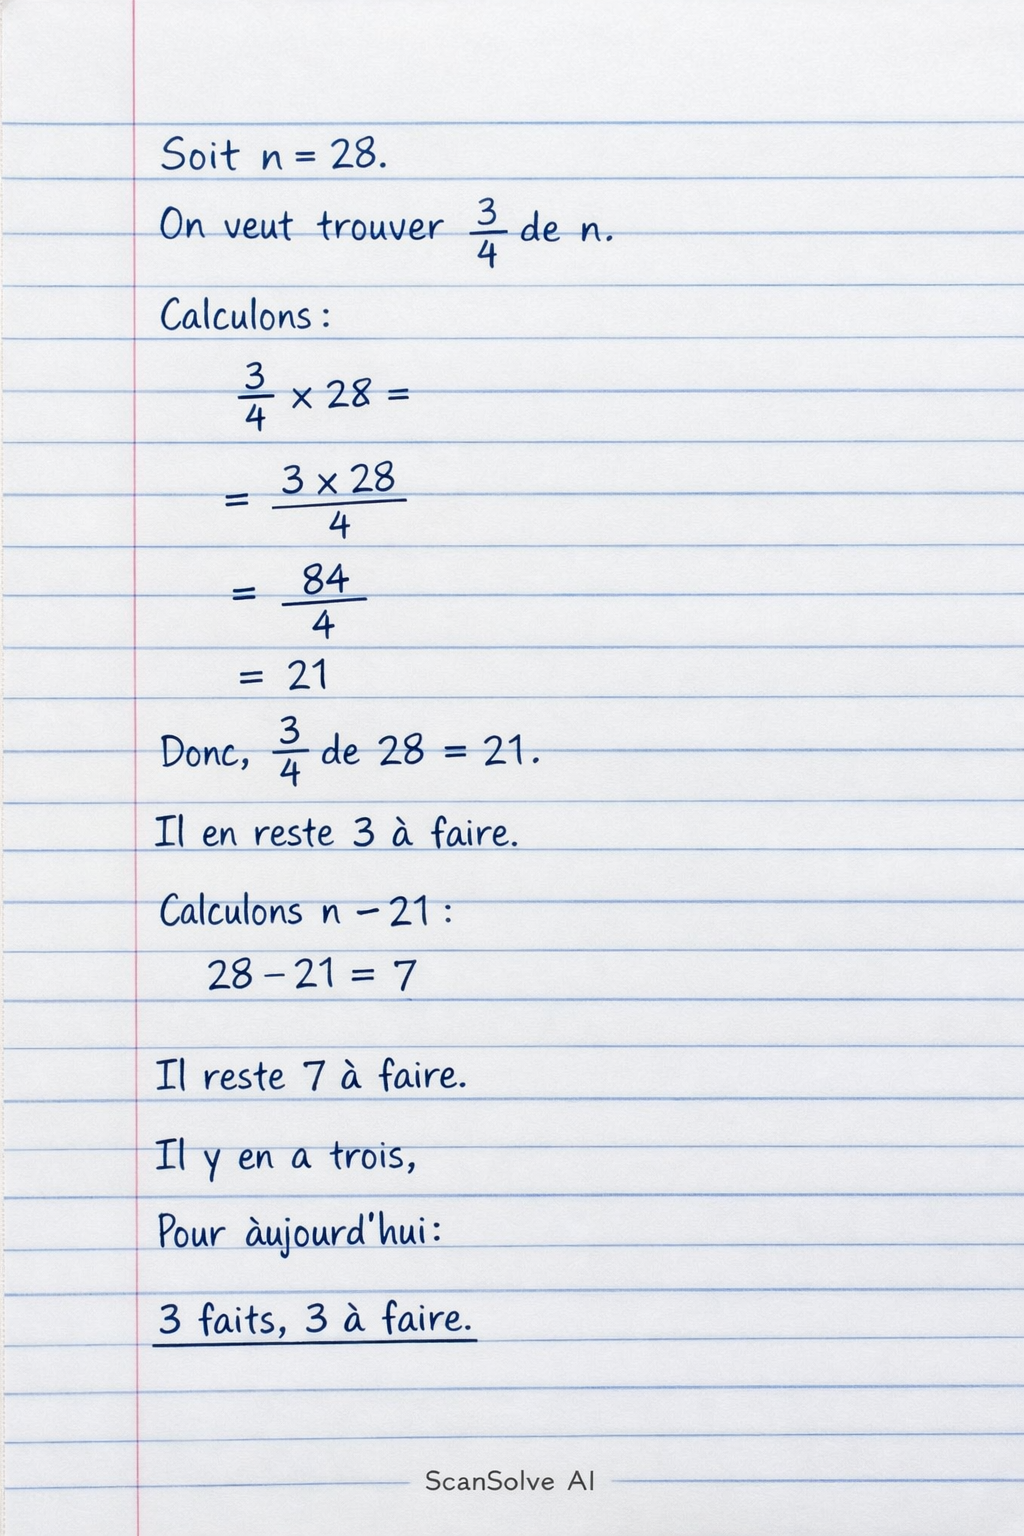 Soit n = 28.
On veut trouver 3/4 de n.
Calculons :
3/4 × 28 =
= (3 × 28)/4
= 84/4
= 21
Donc, 3/4 de 28 = 21.
Il en reste 3 à faire.
Calculons n − 21 :
28 − 21 = 7
Il reste 7 à faire.
Il y en a trois,
Pour àujourd'hui:
3 faits, 3 à faire.
ScanSolve AI